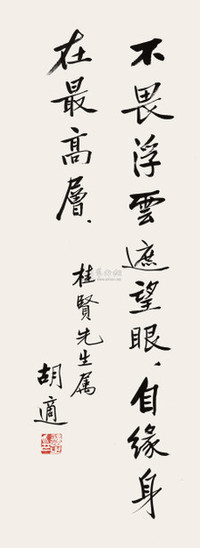 不畏浮雲遮望眼、自緣身
在最高層、
桂賢先生属
胡適